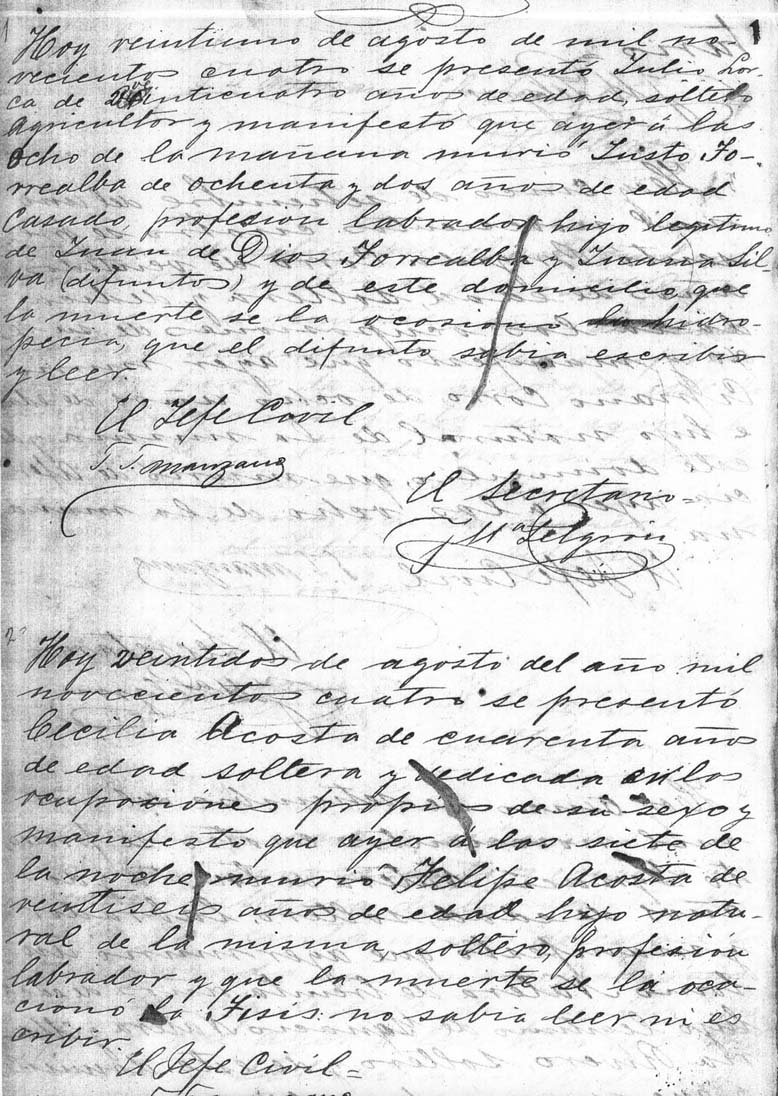 1 1
Hoy veintiuno de agosto de mil no-
vecientos cuatro se presentó Julio Lor-
ca de veinticuatro años de edad, soltero
agricultor y manifestó que ayer á las
ocho de la mañana murió Justo To-
rrealba de ochenta y dos años de edad
casado, profesion labrador hijo legitimo
de Juan de Dios Torrealba y Juana Sil-
va (difuntos) y de este domicilio, que
la muerte se la ocasionó la hidro-
pecia, que el difunto sabia escribir
y leer.
El Jefe Civil
T. T. Manzano
El Secretario=
J Ma
2º
Hoy veintidos de agosto del año mil
novecientos cuatro se presentó
Cecilia Acosta de cuarenta años
de edad soltera y dedicada en las
ocupaciones propias de su sexo y
manifestó que ayer á las siete de
la noche murió Felipe Acosta de
veintiseis años de edad hijo natu-
ral de la misma, soltero, profesión
labrador y que la muerte se la oca-
cionó la Tisis no sabia leer ni es
cribir.
El Jefe Civil=